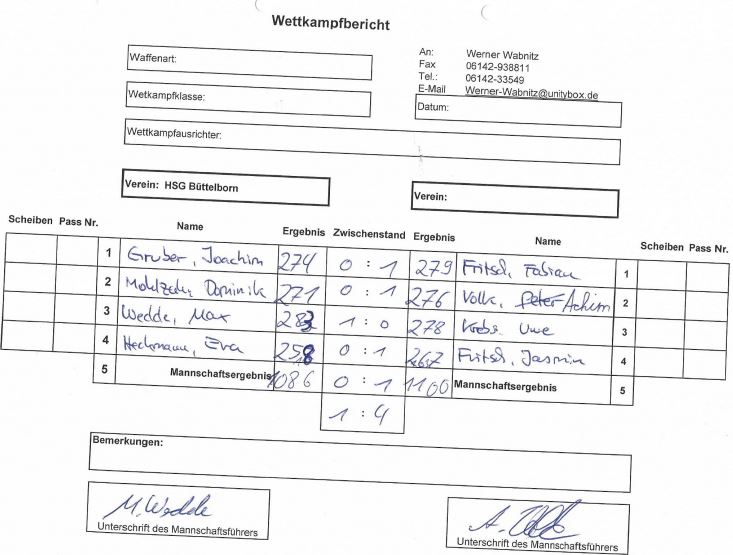 Wettkampfbericht
Waffenart:
An: Werner Wabnitz
Fax 06142-938811
Tel.: 06142-33549
E-Mail Werner-Wabnitz@unitybox.de
Wetkampfklasse:
Datum:
Wettkampfausrichter:
Verein: HSG Büttelborn
Verein:
Scheiben Pass Nr. Name Ergebnis Zwischenstand Ergebnis Name Scheiben Pass Nr.
1 Gruber, Joachim 274 0 : 1 279 Fritsch, Fabian 1
2 Dominik 271 0 : 1 276 Volk, Peter Achim 2
3 Wedde, Max 283 1 : 0 278 Krebs, Uwe 3
4 Heckmann, Eva 258 0 : 1 267 Fritsch, Jasmin 4
5 Mannschaftsergebnis 1086 0 : 1 1100 Mannschaftsergebnis 5
1 : 4
Bemerkungen:
M. Wedde
Unterschrift des Mannschaftsführers
A.
Unterschrift des Mannschaftsführers